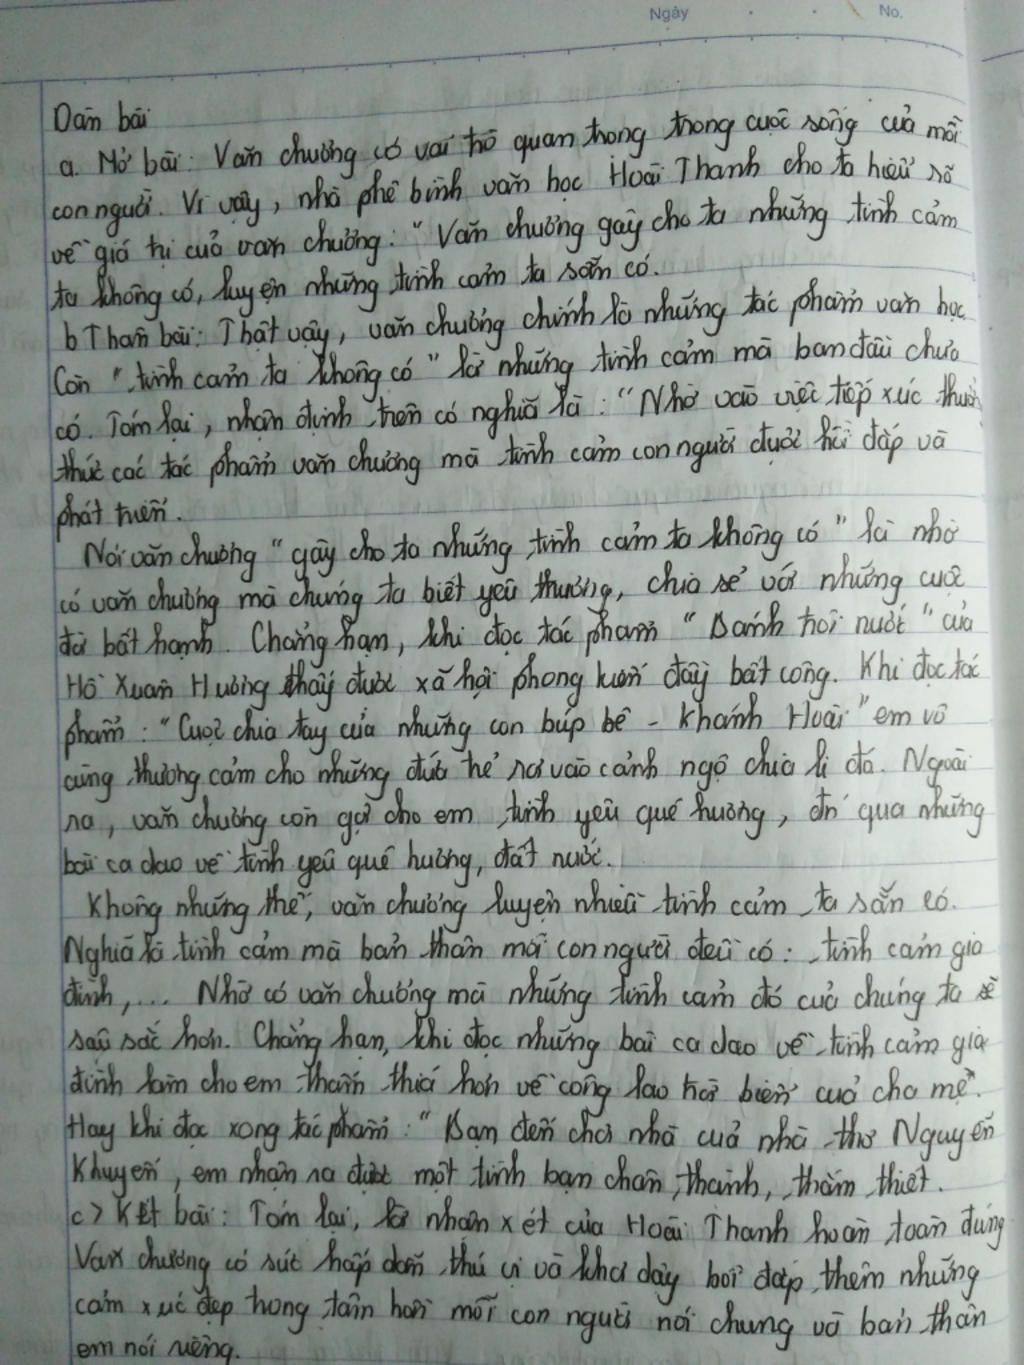 Ngày . . No.
Dàn bài
a. Mở bài: Văn chương có vai trò quan trọng trong cuộc sống của mỗi
con người. Vì vậy, nhà phê bình văn học Hoài Thanh cho ta hiểu rõ
về giá trị của văn chương: "Văn chương gây cho ta những tình cảm
ta không có, luyện những tình cảm ta sẵn có.
b Thân bài: Thật vậy, văn chương chính là những tác phẩm văn học
Còn "tình cảm ta không có" là những tình cảm mà ban đầu chưa
có. Tóm lại, nhận định trên có nghĩa là: "Nhờ vào việc tiếp xúc thưởng
thức các tác phẩm văn chương mà tình cảm con người được bồi đắp và
phát triển.
Nói văn chương "gây cho ta những tình cảm ta không có" là nhờ
có văn chương mà chúng ta biết yêu thương, chia sẻ với những cuộc
đời bất hạnh. Chẳng hạn, khi đọc tác phẩm "Bánh trôi nước" của
Hồ Xuân Hương thấy được xã hội phong kiến đầy bất công. Khi đọc tác
phẩm: "Cuộc chia tay của những con búp bê - Khánh Hoài" em vô
cùng thương cảm cho những đứa trẻ rơi vào cảnh ngộ chia li đó. Ngoài
ra, văn chương còn gợi cho em tình yêu quê hương, đn qua những
bài ca dao về tình yêu quê hương, đất nước.
Không những thế, văn chương luyện nhiều tình cảm ta sẵn có.
Nghĩa là tình cảm mà bản thân mỗi con người đều có: tình cảm gia
đình,... Nhờ có văn chương mà những tình cảm đó của chúng ta sẽ
sâu sắc hơn. Chẳng hạn, khi đọc những bài ca dao về tình cảm gia
đình làm cho em thấm thía hơn về công lao trời biển của cha mẹ.
Hay khi đọc xong tác phẩm: "Bạn đến chơi nhà của nhà thơ Nguyễn
Khuyến, em nhận ra được một tình bạn chân thành, thắm thiết.
c> Kết bài: Tóm lại, lời nhận xét của Hoài Thanh hoàn toàn đúng
Văn chương có sức hấp dẫn thú vị và khơi dậy bồi đắp thêm những
cảm xúc đẹp trong tâm hồn mỗi con người nói chung và bản thân
em nói riêng.